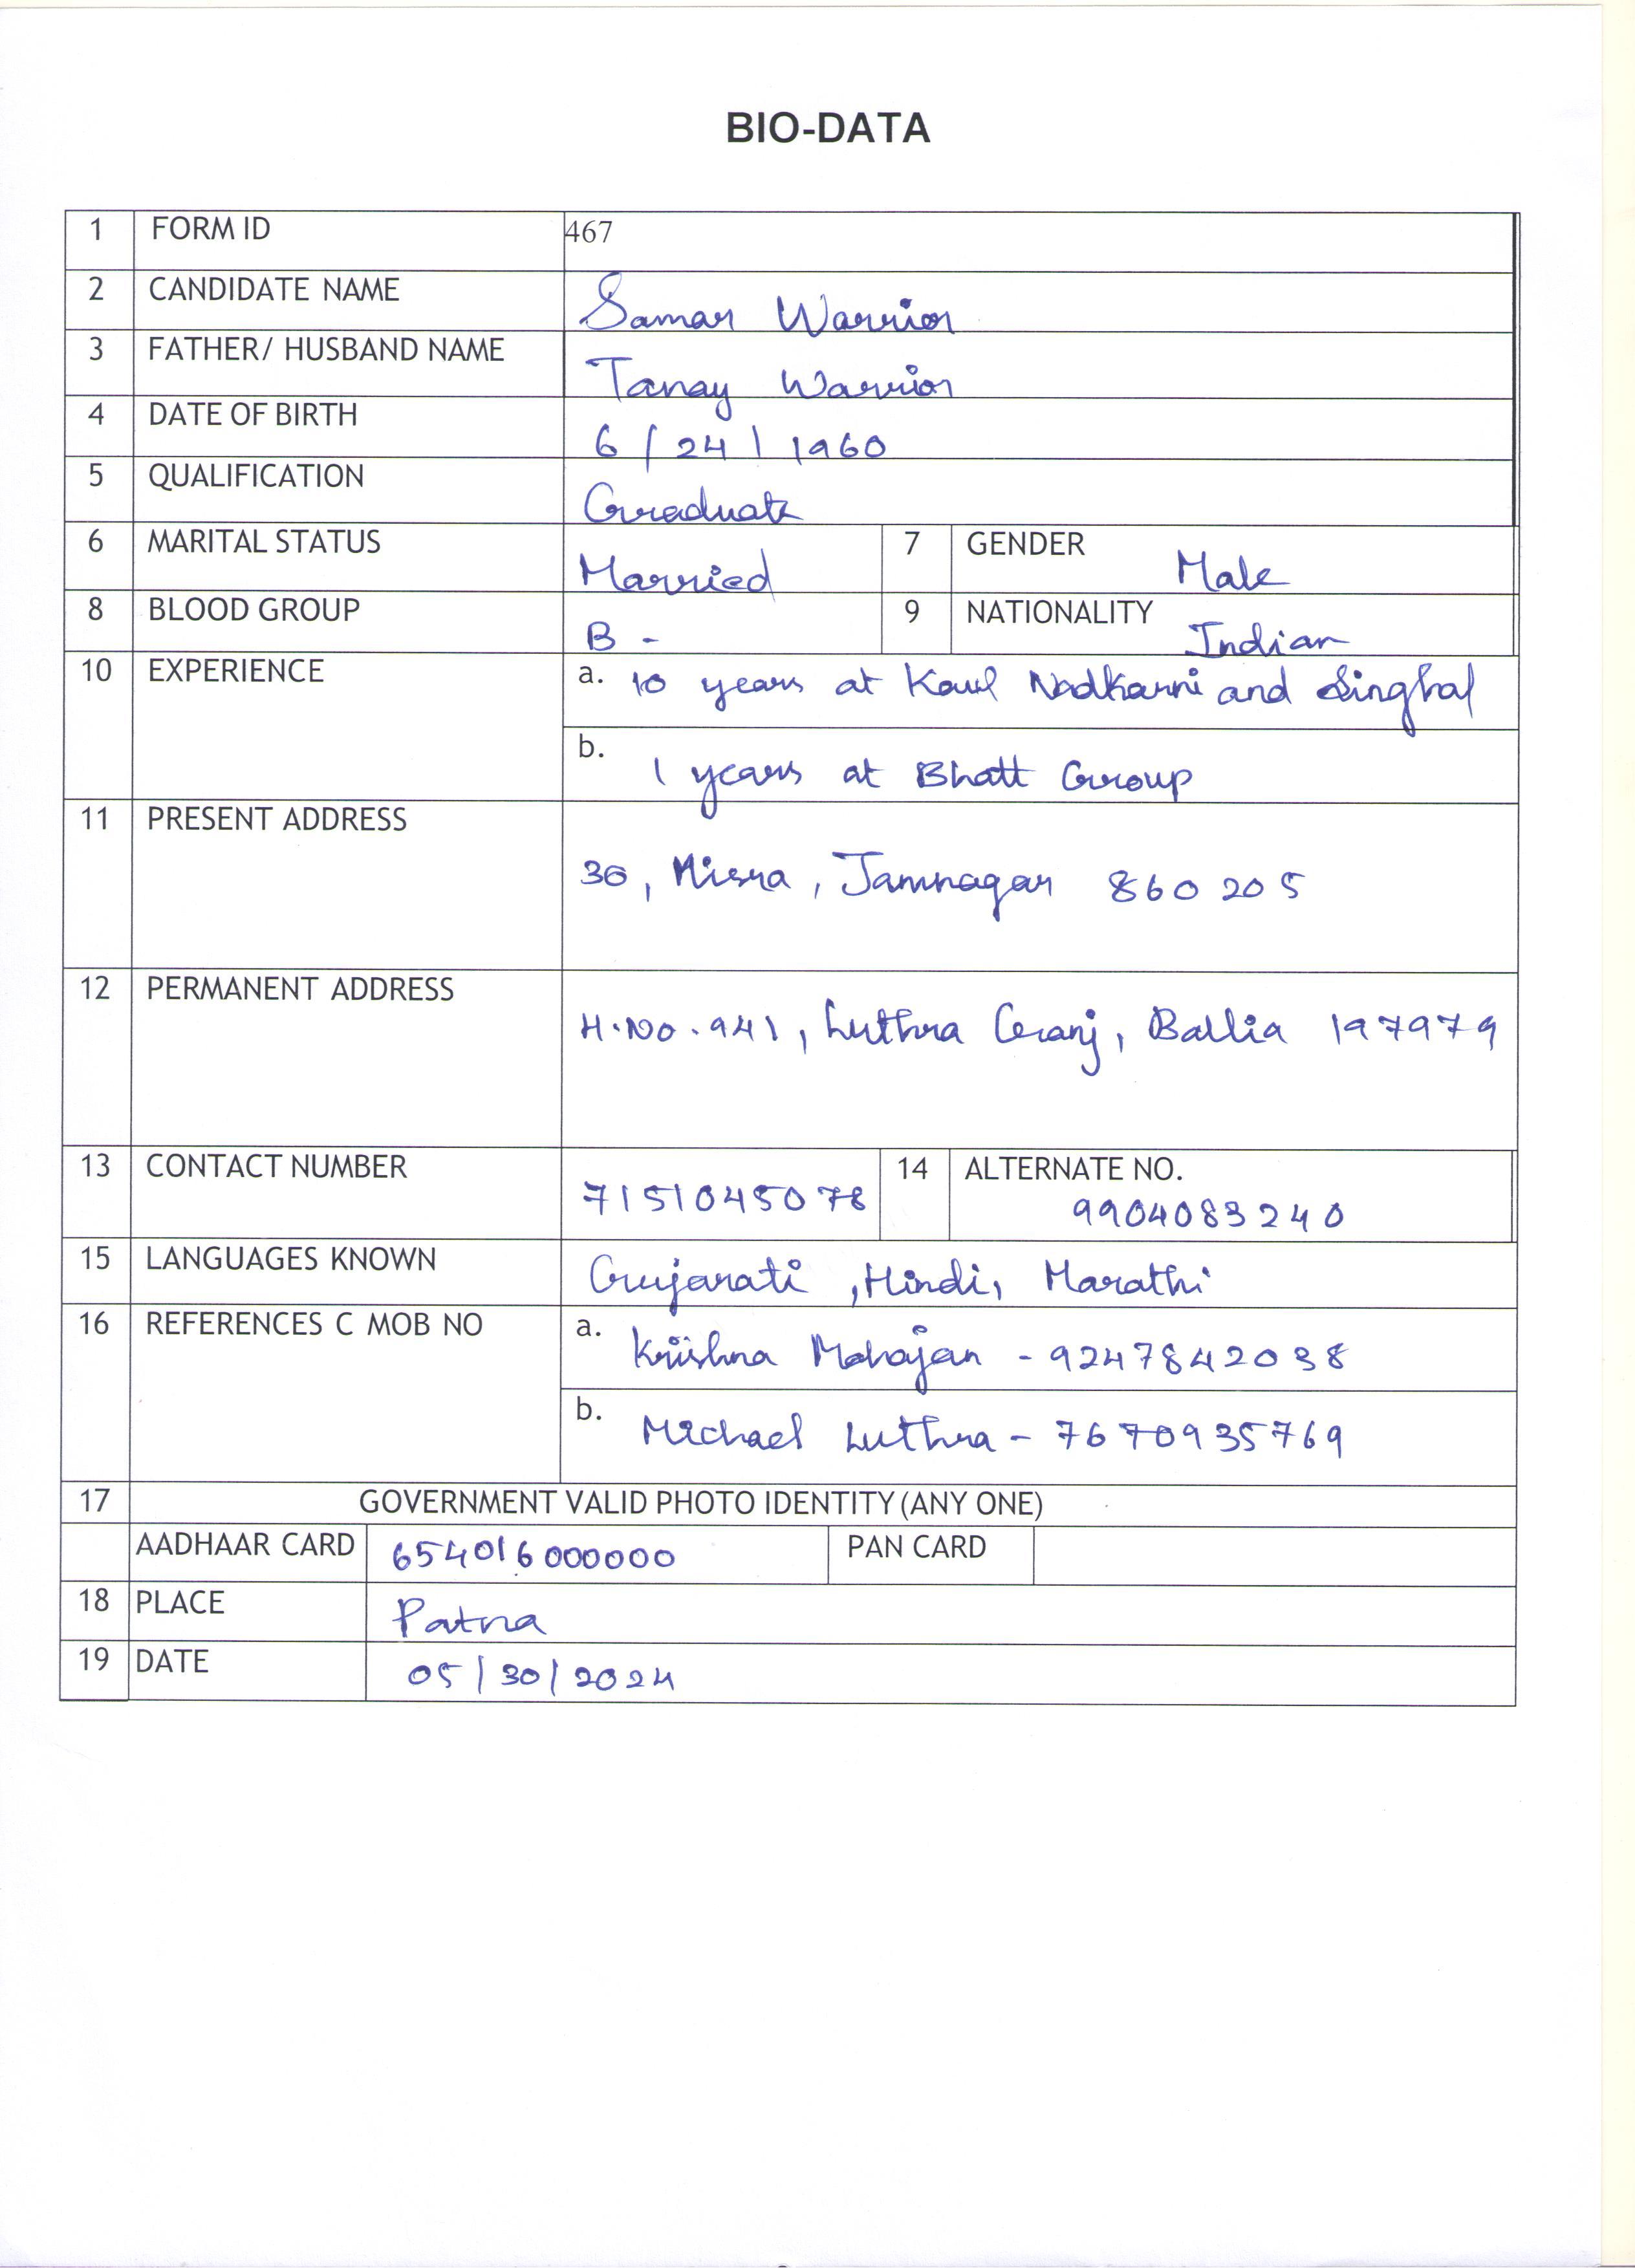 BIO-DATA
1 FORM ID 467
2 CANDIDATE NAME Samar Warrior
3 FATHER/ HUSBAND NAME Tanay Warrior
4 DATE OF BIRTH 6/24/1960
5 QUALIFICATION Graduate
6 MARITAL STATUS Married 7 GENDER Male
8 BLOOD GROUP B - 9 NATIONALITY Indian
10 EXPERIENCE a. 10 years at Kaul Nadkarni and Singhal
b. 1 years at Bhatt Group
11 PRESENT ADDRESS
36, Misra, Jamnagar 860205
12 PERMANENT ADDRESS
H.No. 941, Luthra Ganj, Ballia 197979
13 CONTACT NUMBER 7151045078 14 ALTERNATE NO. 9904083240
15 LANGUAGES KNOWN Gujarati, Hindi, Marathi
16 REFERENCES C MOB NO a. Krishna Mahajan - 9247842038
b. Michael Luthra - 7670935769
17 GOVERNMENT VALID PHOTO IDENTITY (ANY ONE)
AADHAAR CARD 654016000000 PAN CARD
18 PLACE Patna
19 DATE 05/30/2024